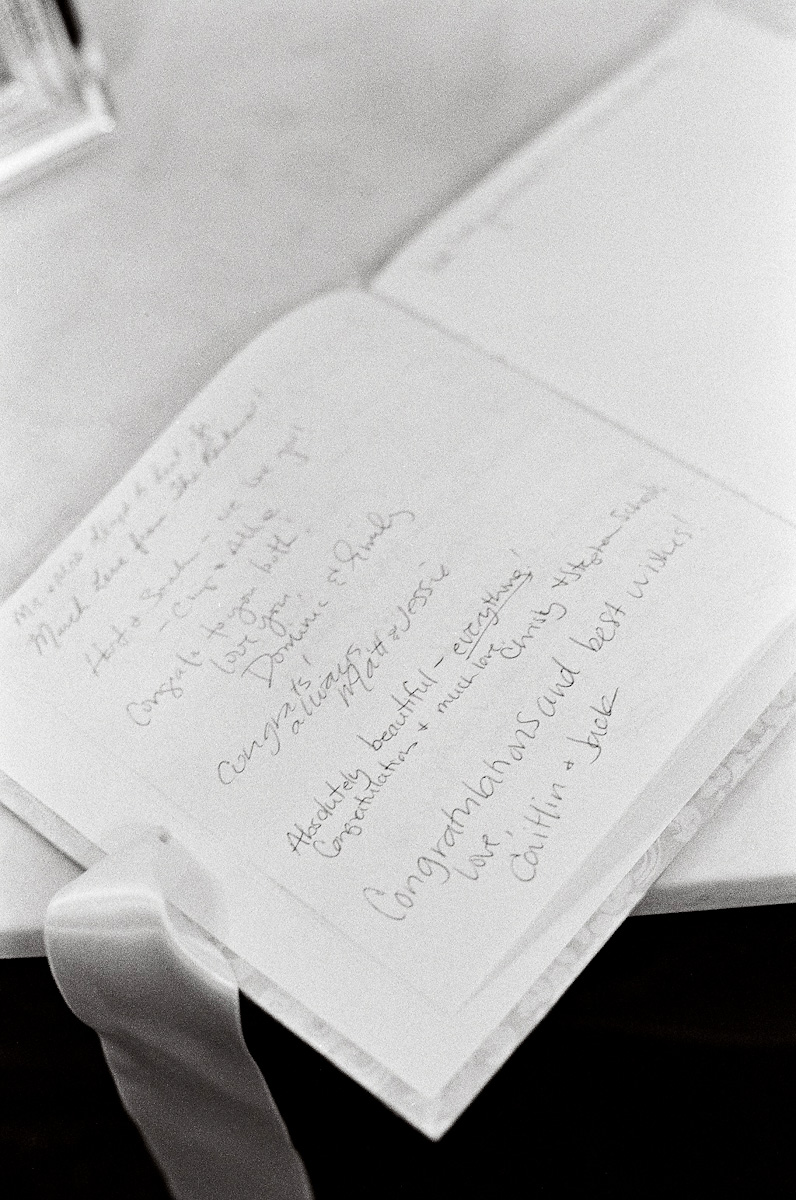 Mr. & Mrs.
Much Love from The
Sarah - We love you!
Congrats to you both!
love you,
Dominic & Emily
Congrats!
always,
Matt & Jessie
Absolutely beautiful - everything!
Congratulations & much love, Christy & Stephen
Congratulations and best wishes!
Love,
Caitlin & Jack